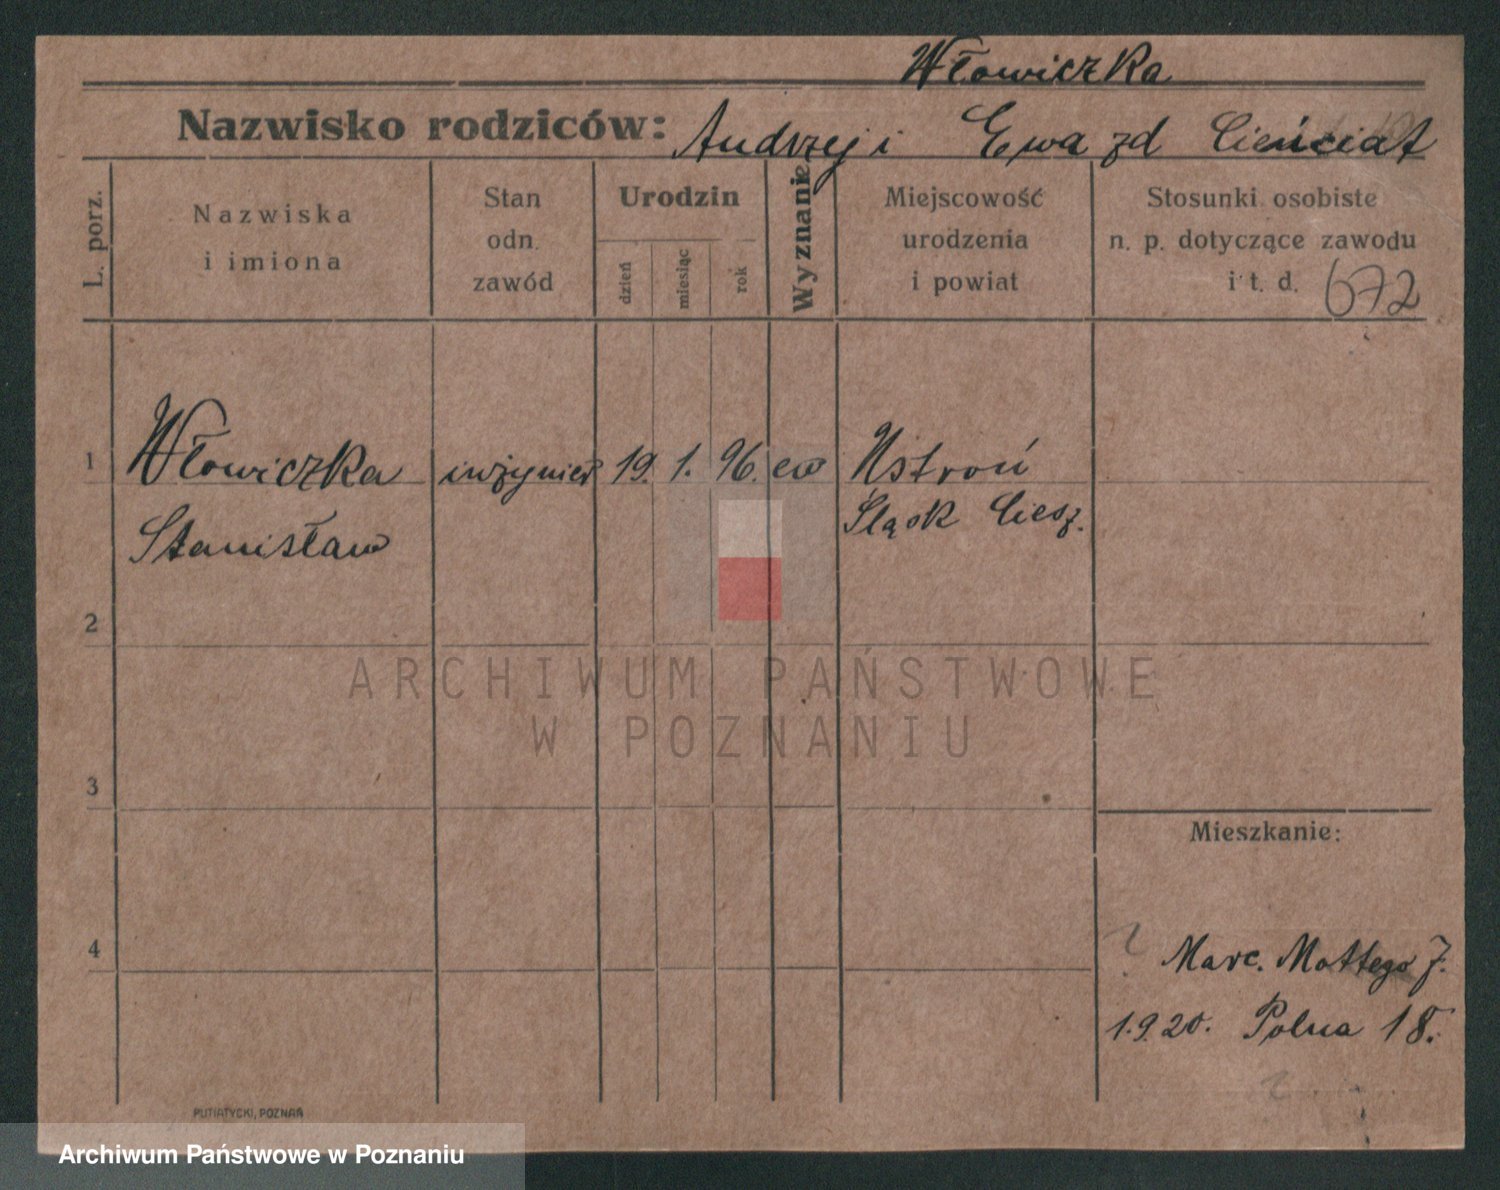 Włowiczka
Nazwisko rodziców: Andrzej i Ewa zd Cieńciał
L. porz.
Nazwiska
i imiona
Stan
odn.
zawód
Urodzin
dzień
miesiąc
rok
Wyznanie
Miejscowość
urodzenia
i powiat
Stosunki osobiste
n. p. dotyczące zawodu
i t. d. 672
1 Włowiczka inżynier 19. 1. 96. ew Ustroń
Stanisław Śląsk Ciesz.
2
ARCHIWUM PAŃSTWOWE
W POZNANIU
3
Mieszkanie:
4
? Marc. Mottego 7.
1.9.20. Polna 18.
PUTIATYCKI, POZNAŃ
Archiwum Państwowe w Poznaniu